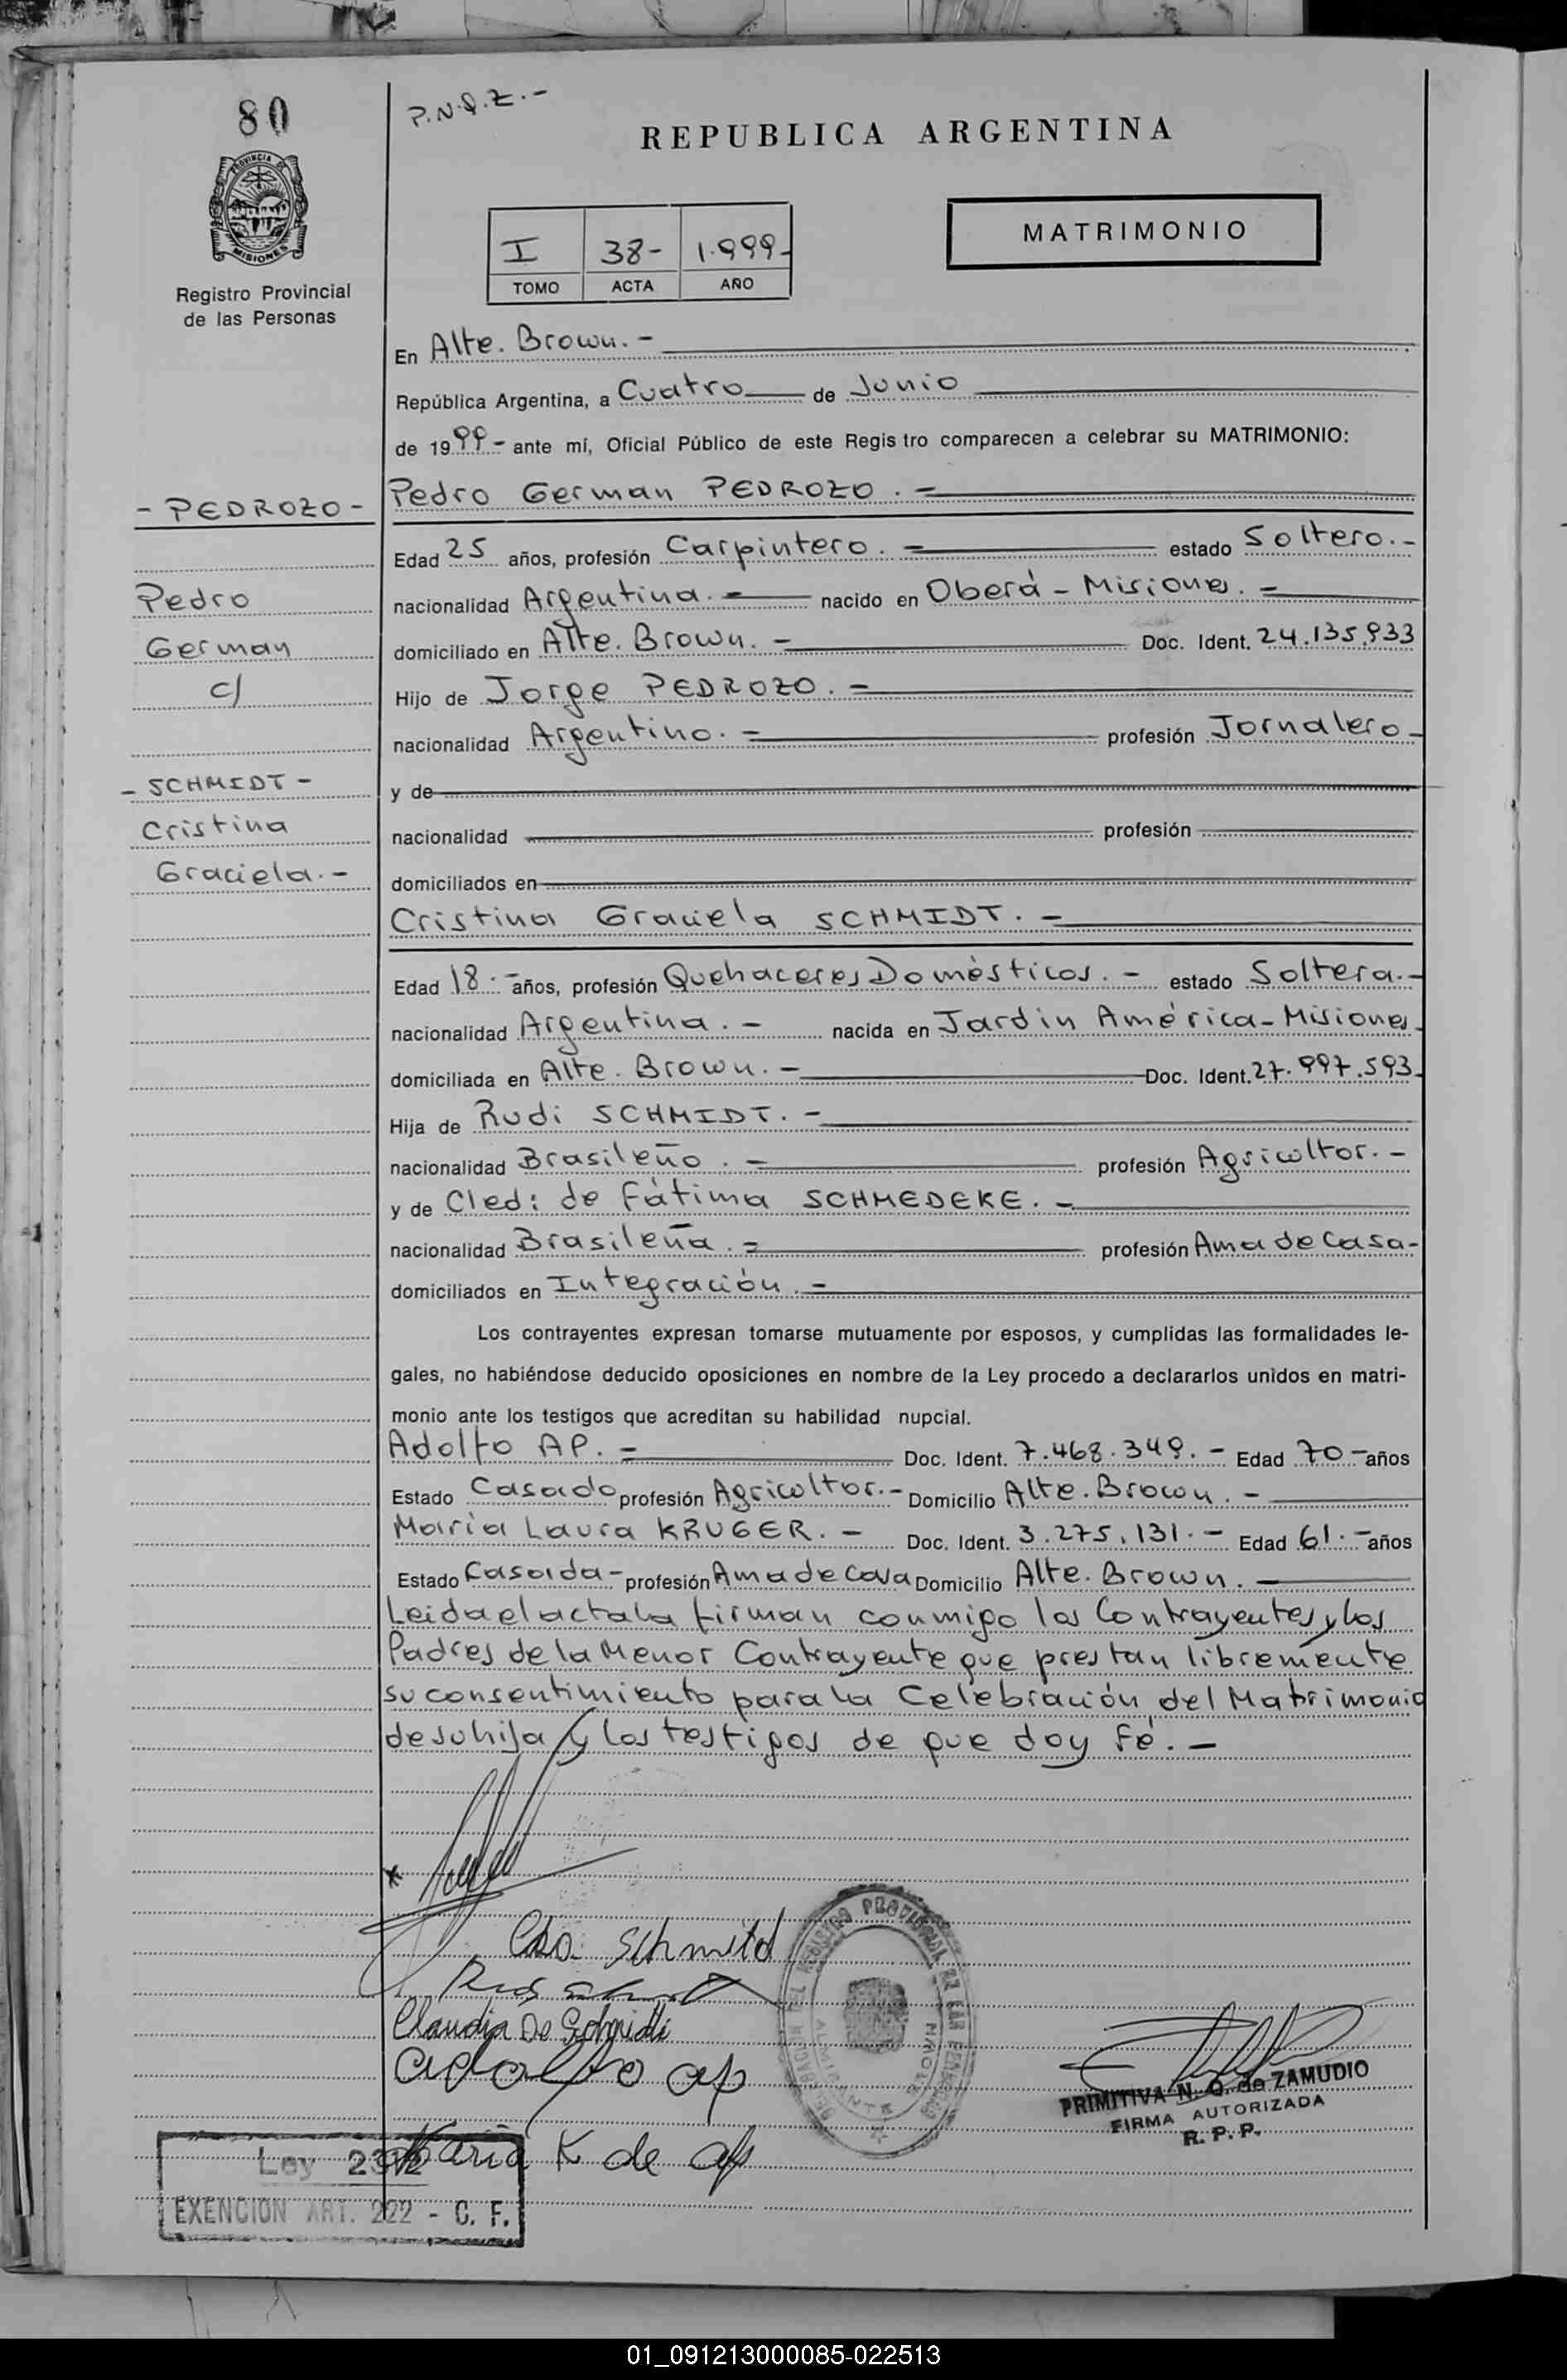 80
P.N.Q.Z.-
REPUBLICA ARGENTINA
PROVINCIA DE
MISIONES
Registro Provincial
de las Personas
MATRIMONIO
I 38- 1.999-
TOMO ACTA AÑO
En Alte. Brown.-
República Argentina, a Cuatro de Junio
de 1999- ante mí, Oficial Público de este Regis tro comparecen a celebrar su MATRIMONIO:
- PEDROZO -
Pedro German PEDROZO.-
Edad 25 años, profesión Carpintero.- estado Soltero.-
Pedro
nacionalidad Argentina.- nacido en Oberá - Misiones.-
German
domiciliado en Alte. Brown.- Doc. Ident. 24.135.933
c/
Hijo de Jorge PEDROZO.-
nacionalidad Argentino.- profesión Jornalero-
- SCHMIDT -
y de
Cristina
nacionalidad profesión
Graciela.-
domiciliados en
Cristina Graciela SCHMIDT.-
Edad 18.- años, profesión Quehaceres Domésticos.- estado Soltera.-
nacionalidad Argentina.- nacida en Jardin América-Misiones-
domiciliada en Alte. Brown.- Doc. Ident. 27.997.593-
Hija de Rudi SCHMIDT.-
nacionalidad Brasileño.- profesión Agricultor.-
y de Cledi de Fátima SCHMEDEKE.-
nacionalidad Brasileña.- profesión Ama de Casa-
domiciliados en Integración.-
Los contrayentes expresan tomarse mutuamente por esposos, y cumplidas las formalidades le-
gales, no habiéndose deducido oposiciones en nombre de la Ley procedo a declararlos unidos en matri-
monio ante los testigos que acreditan su habilidad nupcial.
Adolfo AP.- Doc. Ident. 7.468.349.- Edad 70- años
Estado Casado profesión Agricultor.- Domicilio Alte. Brown.-
María Laura KRUGER.- Doc. Ident. 3.275.131.- Edad 61.- años
Estado Casada- profesión Ama de Casa Domicilio Alte. Brown.-
Leida el acta la firman conmigo los Contrayentes y los
Padres de la Menor Contrayente que prestan libremente
su consentimiento para la Celebración del Matrimonio
de su hija y los testigos de que doy Fé.-
Schmitd
Claudia De Schmidt
adolfo ap
PRIMITIVA N. Q. de ZAMUDIO
FIRMA AUTORIZADA
R. P. P.
Maria K de ap
Ley 2312
EXENCION ART. 222 - C. F.
01_091213000085-022513